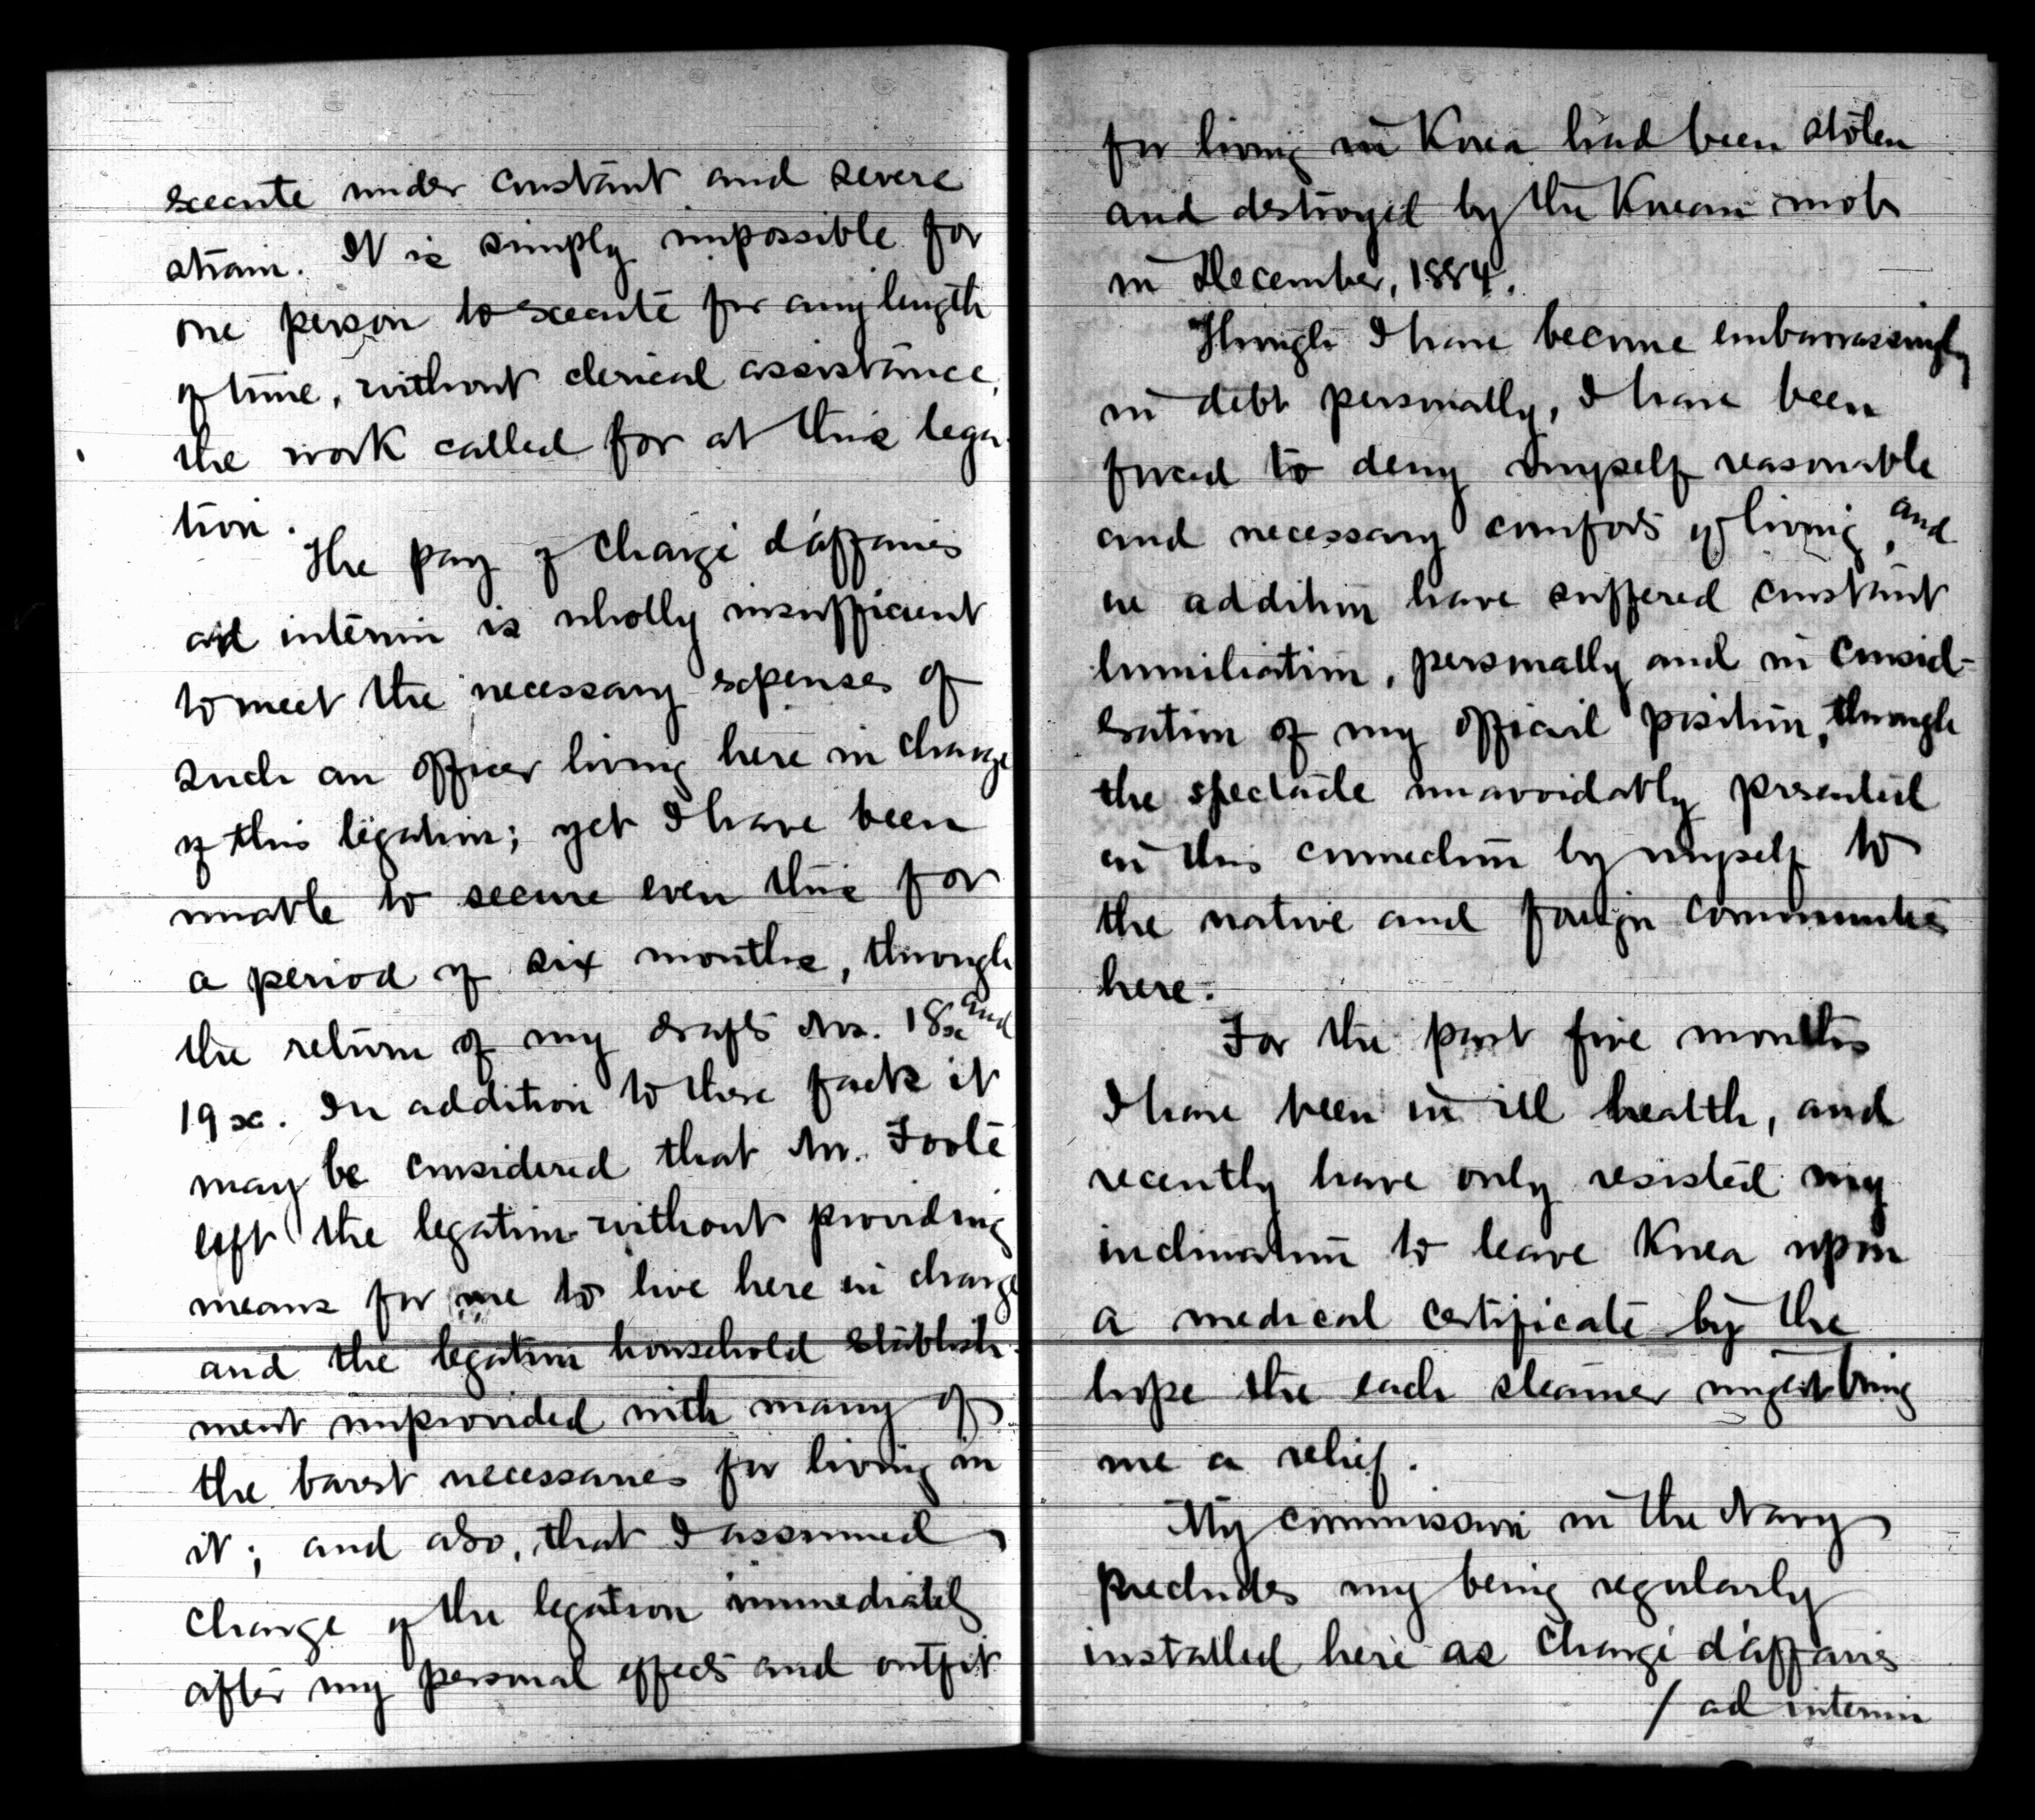 execute under constant and severe
strain. It is simply impossible for
one person to execute for any length
of time, without clerical assistance,
the work called for at this lega-
tion.
The pay of Chargé d'affaires
ad interim is wholly insufficient
to meet the necessary expenses of
such an officer living here in charge
of this legation; yet I have been
unable to secure even this for
a period of six months, through
the return of my drafts Nos. 18x and
19x. In addition to these facts it
may be considered that Mr. Foote
left the legation without providing
means for me to live here in charge
and the legation household establish-
ment unprovided with many of
the barest necessaries for living in
it; and also, that I assumed
charge of the legation immediately
after my personal effects and outfit
for living in Korea had been stolen
and destroyed by the Korean mob
in December, 1884.
Though I have become embarrassingly
in debt personally, I have been
forced to deny myself reasonable
and necessary comforts of living, and
in addition have suffered constant
humiliation, personally and in consid-
eration of my official position, through
the spectacle unavoidably presented
in this connection by myself to
the native and foreign communities
here.
For the past five months
I have been in ill health, and
recently have only resisted my
inclination to leave Korea upon
a medical certificate by the
hope the each steamer might bring
me a relief.
My commission in the Navy
precludes my being regularly
installed here as Chargé d'affaires
/ ad interim